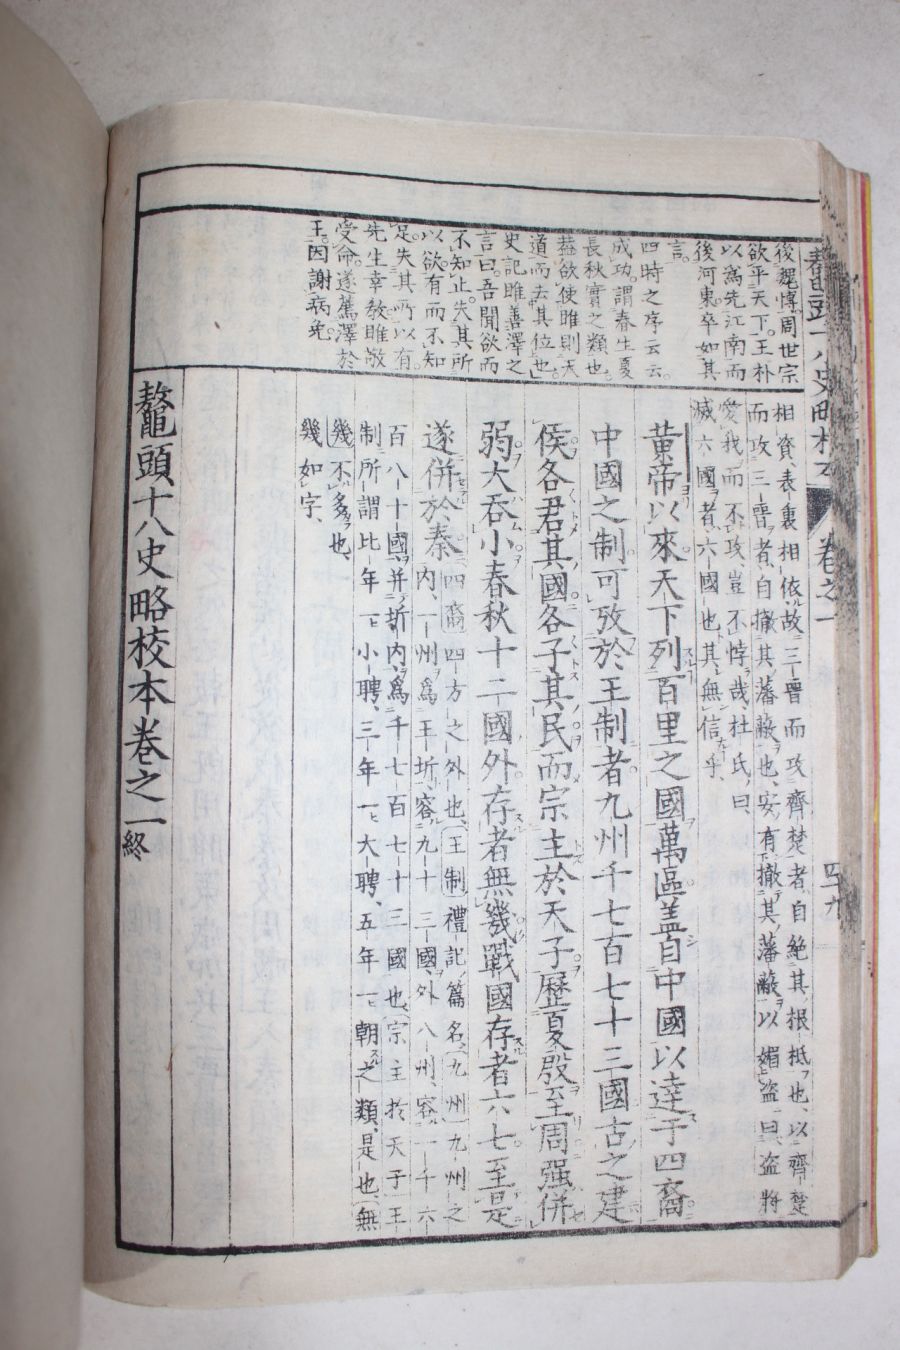 鼇頭十八史略校本 卷之一 四十九
後魏博周世宗
欲平天下王朴
以爲先江南而
後河東卒如其
言。
四時之序云云
成功。謂春生夏
長秋實之類也。
蔡欲使睢則天
道而去其位也。
史記睢善澤之
言曰。吾聞欲而
不知止失其所
以欲有而不知
足。失其所以有。
先生幸敎睢敬
受命。遂薦澤於
王。因謝病免。
相資、表裏相依故三晉而攻齊楚者、自絕其根柢也、以齊楚
而攻三晉者、自撤其藩蔽也、安有撤其藩蔽以媚盜曰盜將
愛我而不攻、豈不悖哉、杜氏曰、
滅六國者六國也其無信乎、
黃帝以來天下列百里之國萬區蓋自中國以達于四裔
中國之制可攷於王制者九州千七百七十三國古之建
侯各君其國各子其民而宗主於天子歷夏殷至周强併
弱大吞小春秋十二國外存者無幾戰國存者六七至是
遂併於秦 四裔四方之外也、王制禮記篇名、九州九州之
內、一州爲王圻、容九十三國、外八州、容一千六
百八十國、幷圻內爲千七百七十三國也、宗主於天子王
制所謂比年一小聘、三年一大聘、五年一朝之類、是也、無
幾不多也、
幾如字、
鼇頭十八史略校本卷之一終